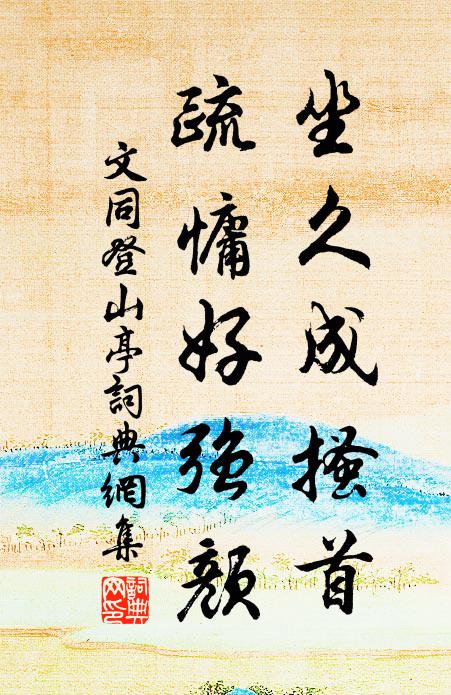 坐久成搔首
疏慵好強顏
文同登山亭詞典網集
詞典